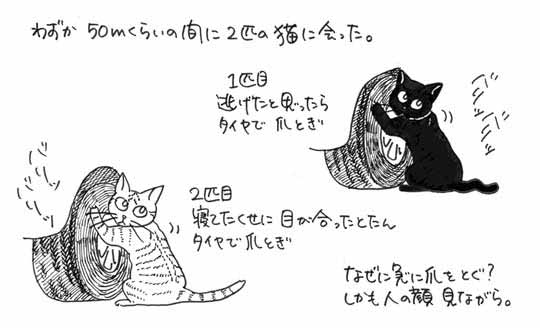 わずか 50mくらいの間に2匹の猫に会った。
1匹目
逃げたと思ったら
タイヤで爪とぎ
バリッバリッ
バリバリッ
2匹目
寝てたくせに目が合ったとたん
タイヤで爪とぎ
なぜに急に爪をとぐ?
しかも人の顔見ながら。